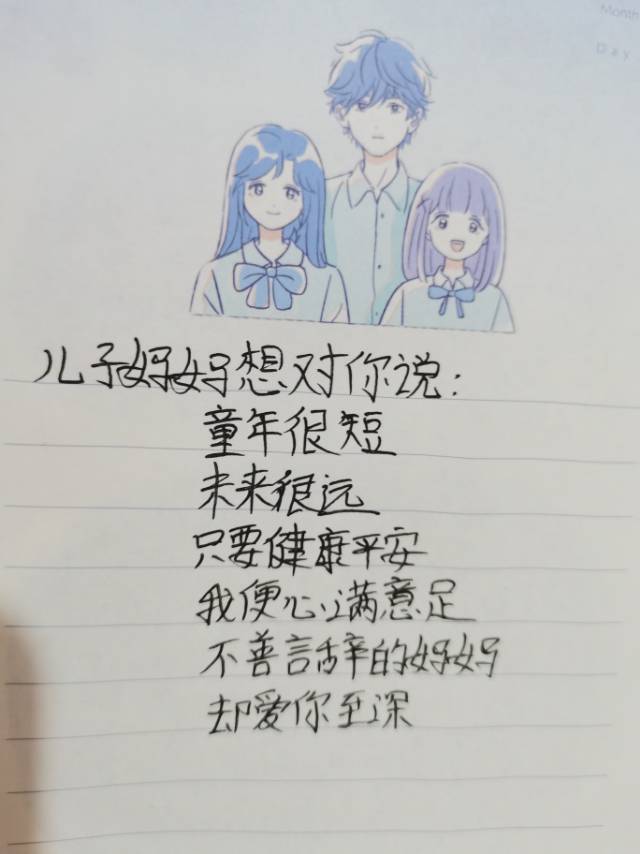 Month
Day
儿子妈妈想对你说：
童年很短
未来很远
只要健康平安
我便心满意足
不善言辞的妈妈
却爱你至深